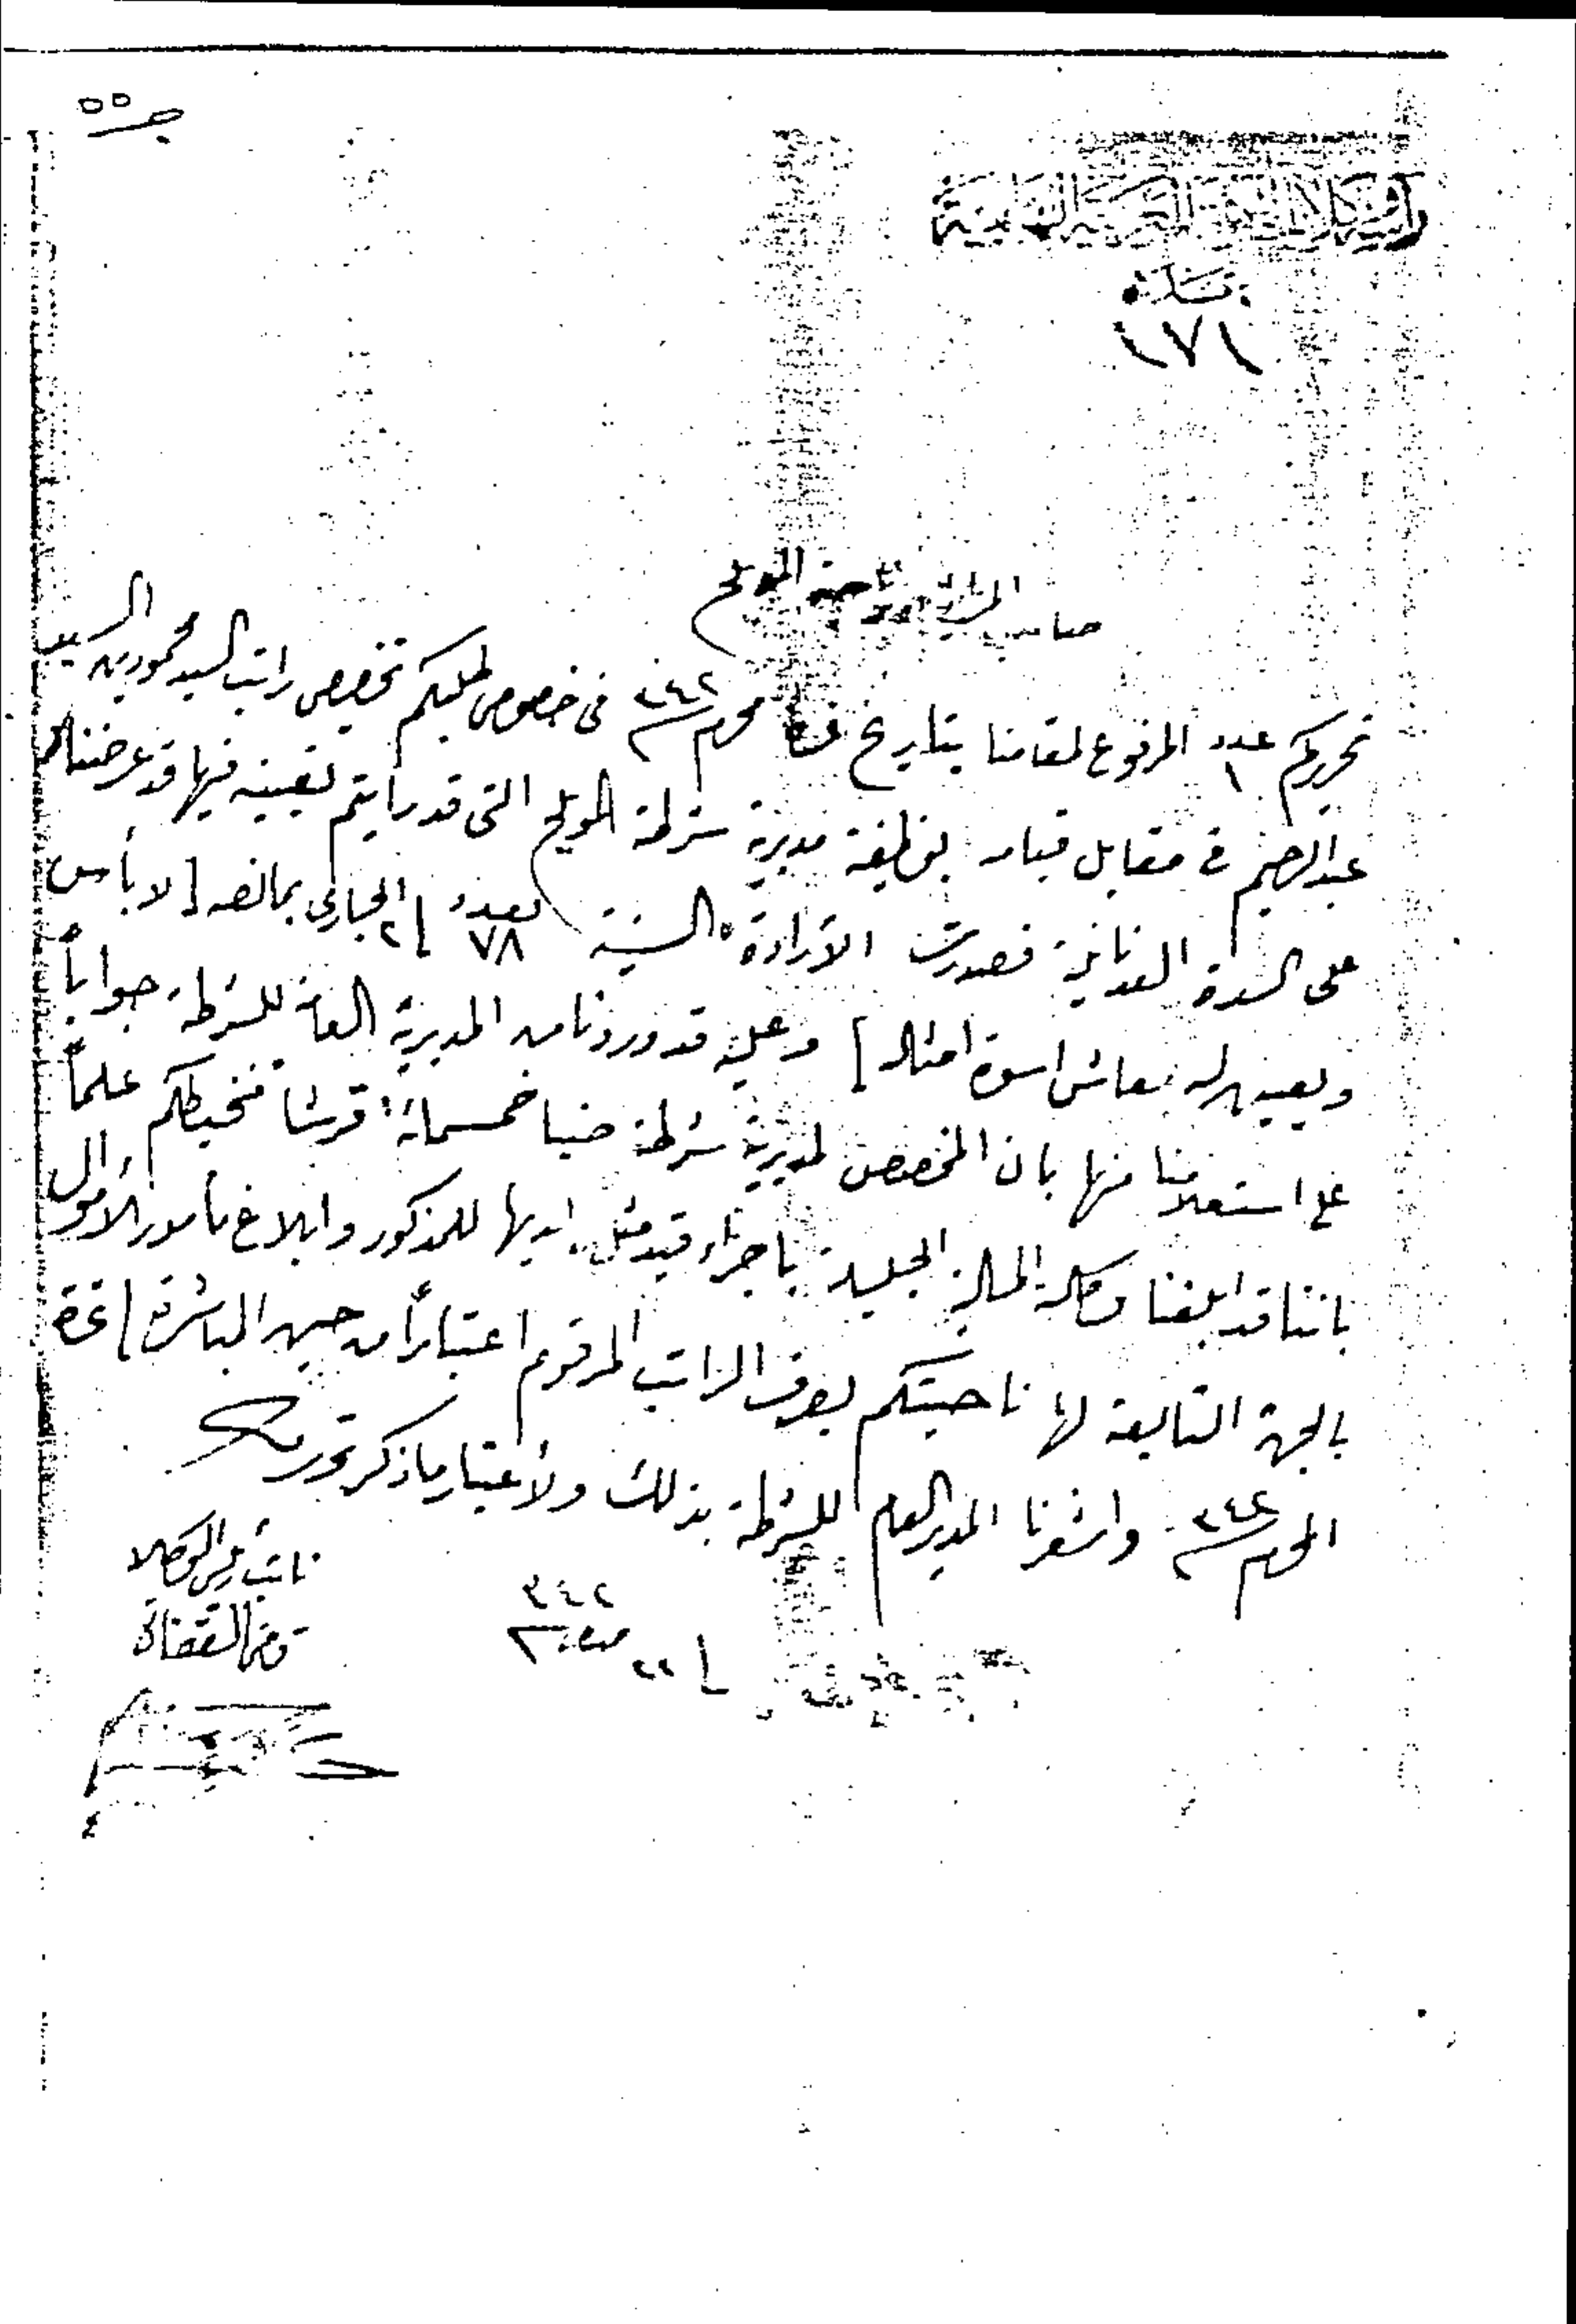 ص ٥٥
رئاسة وكلاء الحكومة العربية الهاشمية
عدد
١٧١
صاحب ناحية المويلح
تحريركم عدد ١ المرفوع لمقامنا بتاريخ غرة محرم سنة ٣٤٢ في خصوص طلبكم تخصيص راتب السيد محمود بن السيد
عبد الرحيم في مقابل قيامه بوظيفة مديرية شرطة المويلح التي قد رأيتم تعيينه فيها قد عرضناه
على السدة فصدرت الارادة السنية بعدد ٧٨ ٢ الجاري بما نصه [لا بأس
ويعين له معاش اسوة امثاله] وعليه قد وردنا من المديرية العامة للشرطة جواباً
على استعلامنا منها بان المخصص لمديرية شرطة ضبا خمسمائة قرشا فنحيطكم علماً
باننا قد ابلغنا وكالة المالية الجليلة باجراء قيد مثل للمذكور وابلاغ مأمور الاموال
بالجهة التابعة لها ناحيتكم بصرف الراتب المرقوم اعتباراً من حين المباشرة [غرة
المحرم سنة ٣٤٢ واشعرنا المدير العام للشرطة بذلك ولاعتبار ما ذكر تحرر
٢٢ سنة ٣٤٢
نائب رئيس الوكلا
قاضي القضاة